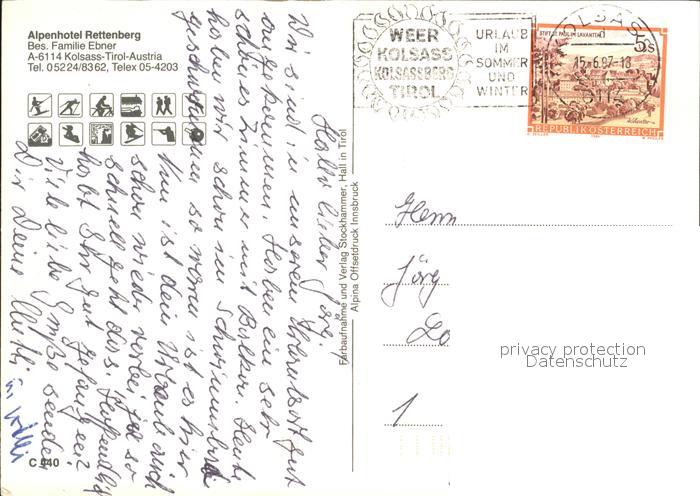 Alpenhotel Rettenberg
Bes. Familie Ebner
A-6114 Kolsass-Tirol-Austria
Tel. 05224/8362, Telex 05-4203
Hallo lieber Jörg,
Wir sind in unserem Urlaubsort gut
angekommen. Haben ein sehr
schönes Zimmer mit Balkon. Heute
haben wir schon im Schwimmbad
geschwommen so warm ist es hier
Nun ist dein Urlaub auch
schon wieder vorbei, ja so
schnell geht das. Hoffendlich
habt Ihr gut gefangen?
Viele liebe Grüße sendet
Dir Deine Mutti
Willi
C 440
Farbaufnahme und Verlag Stockhammer, Hall in Tirol
Alpina Offsetdruck Innsbruck
WEER
KOLSASS
KOLSASSBERG
TIROL
URLAUB
IM
SOMMER
UND
WINTER
KOLSASS
15.-6.87-18
6114
STIFT ST. PAUL IM LAVANTTAL
5s
REPUBLIK ÖSTERREICH
Herrn
Jörg
Lo
1
privacy protection
Datenschutz